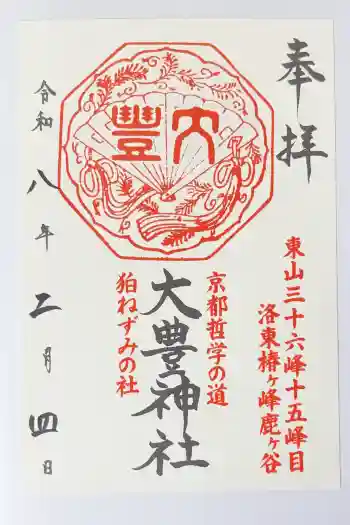 奉拝
東山三十六峰十五峰目
洛東椿ヶ峰鹿ヶ谷
京都哲学の道
大豊
大豊神社
狛ねずみの社
令和八年二月四日